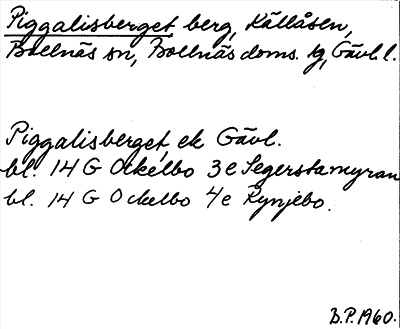 Piggalisberget berg, Källåsen,
Bollnäs sn, Bollnäs doms. tg, Gävl. l.
Piggalisberget, ek Gävl.
bl. 14 G Ockelbo 3e Segerstamyran
bl. 14 G Ockelbo 4e Rynjebo.
B.P. 1960.